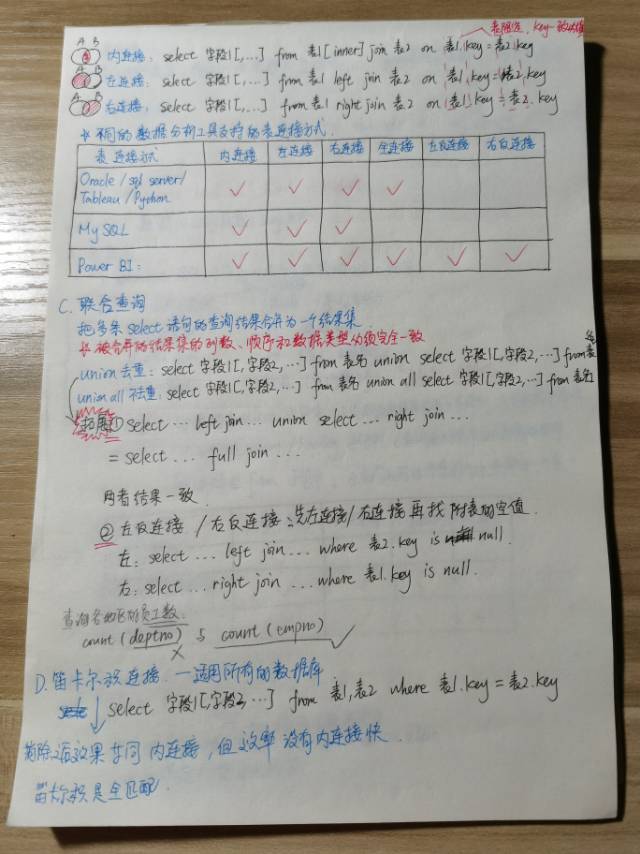 A B 内连接: select 字段1[,...] from 表1 [inner] join 表2 on 表1.key = 表2.key
A B 左连接: select 字段1[,...] from 表1 left join 表2 on 表1.key = 表2.key
A B 右连接: select 字段1[,...] from 表1 right join 表2 on 表1.key = 表2.key
* 不同的数据分析工具支持的表连接方式.
表连接方式 内连接 左连接 右连接 全连接 左反连接 右反连接
Oracle / sql server / Tableau / Python ✓ ✓ ✓ ✓
My SQL ✓ ✓ ✓
Power BI: ✓ ✓ ✓ ✓ ✓ ✓
C. 联合查询
把多条 select 语句的查询结果合并为一个结果集
* 被合并的结果集的列数、顺序和数据类型必须完全一致
union 去重: select 字段1[,字段2,...] from 表名 union select 字段1[,字段2,...] from 表名
union all 不去重: select 字段1[,字段2,...] from 表名 union all select 字段1[,字段2,...] from 表名
拓展① select ... left join ... union select ... right join ...
= select ... full join ...
两者结果一致.
② 左反连接 / 右反连接: 先左连接/右连接再找附表的空值.
左: select ... left join ... where 表2.key is null.
右: select ... right join ... where 表1.key is null.
查询各地区所员工数:
count (deptno) 与 count (empno)
× ✓
D. 笛卡尔积连接. — 适用所有的数据库
select 字段1[,字段2,...] from 表1,表2 where 表1.key = 表2.key
筛除之后效果等同内连接, 但效率没有内连接快.
笛卡尔积是全匹配.